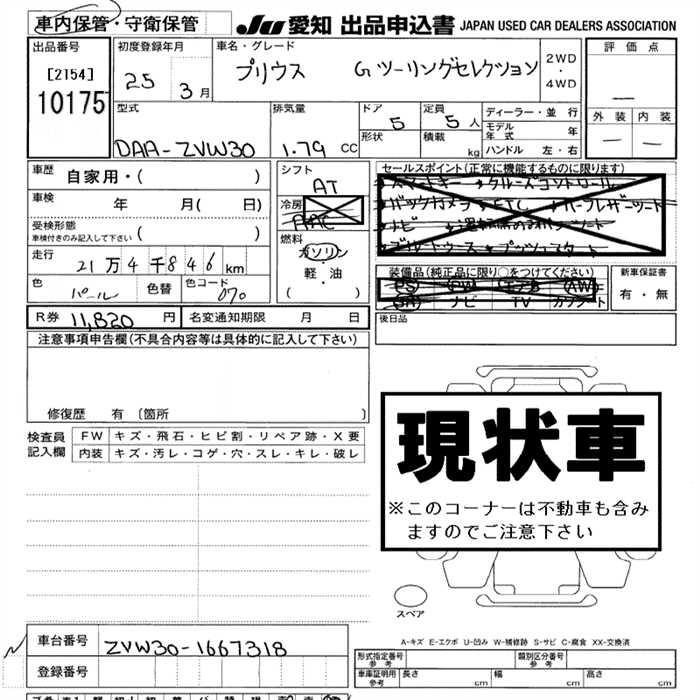 車内保管・守衛保管 JU 愛知 出品申込書 JAPAN USED CAR DEALERS ASSOCIATION
出品番号 初度登録年月 車名・グレード 評価点
[2154] 25 3月 プリウス Gツーリングセレクション 2WD・4WD
10175 型式 排気量 ドア 定員 ディーラー・並行 外装 内装
5 5人 モデル年式 年
DAA-ZVW30 1.79 CC 形状 積載 kg ハンドル 左・右
車歴 自家用・( ) シフト AT セールスポイント(正常に機能するものに限ります)
車検 年 月( 日) 冷房 スマートキー クルーズコントロール
受検形態 車検付きのみ記入して下さい ( ) バックカメラ ETC ハーフレザーシート
燃料 ガソリン・軽・油 ( ) ナビ
走行 21万4千846km
色 パール 色替 色コード 070 装備品(純正品に限り○をつけてください) 新車保証書
PS PW エアB AW 有・無
ナビ TV カワシート
R券 11,820円 名変通知期限 月 日 後日品
注意事項申告欄(不具合内容等は具体的に記入して下さい)
修復歴 有 〔箇所 〕
検査員記入欄 FW キズ・飛石・ヒビ割・リペア跡・X要
内装 キズ・汚レ・コゲ・穴・スレ・キレ・破レ
現状車
※このコーナーは不動車も含み
ますのでご注意下さい
スペア
A-キズ E-エクボ U-凹み W-補修跡 S-サビ C-腐食 XX-交換済
車台番号 ZVW30-1667318 形式指定番号 参考 類別区分番号 参考
登録番号 車庫証明用 参考 長さ cm 幅 cm 高さ cm